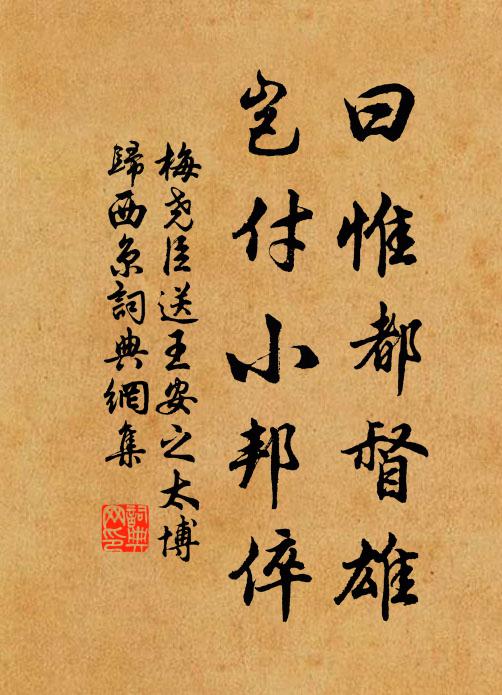 曰惟都督雄
岂付小邦倅
梅尧臣送王安之太博
歸西京詞典網集
詞典網印